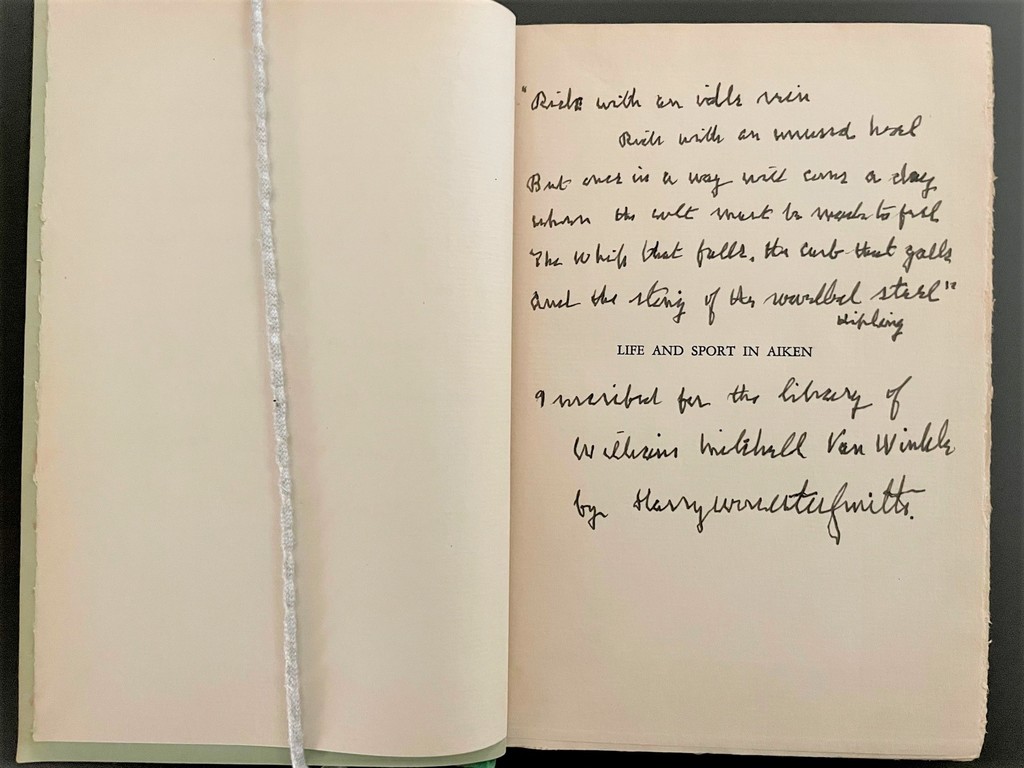 "Ride with an idle rein
Ride with an unused heel
But once in a way will come a day
when the colt must be made to feel
The whip that falls, the curb that galls
and the sting of the rowelled steel"
Kipling
LIFE AND SPORT IN AIKEN
Inscribed for the library of
William Mitchell Van Winkle
by Harry Worcester Smith.